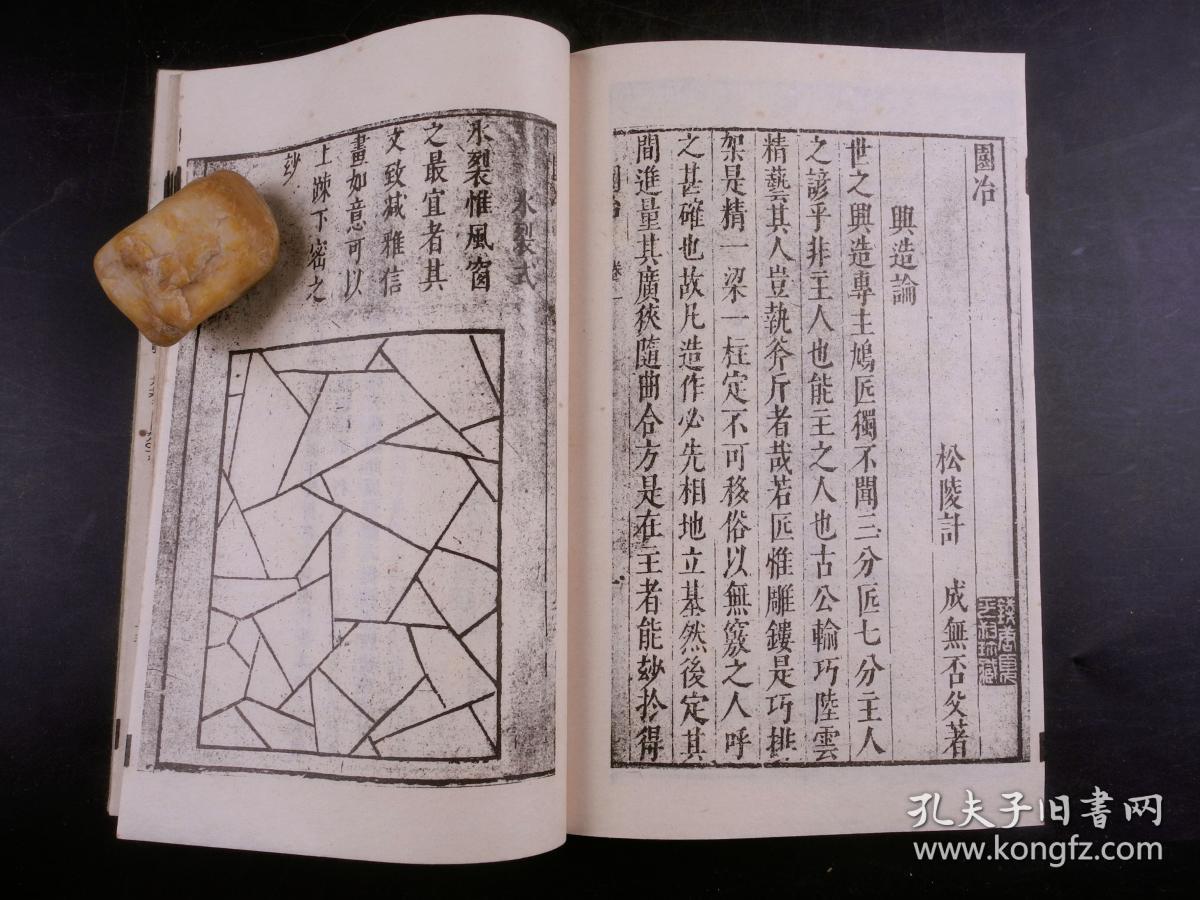 園冶
興造論
松陵計　成無否父著
世之興造專主鳩匠獨不聞三分匠七分主人
之諺乎非主人也能主之人也古公輸巧陸雲
精藝其人豈執斧斤者哉若匠惟雕鏤是巧排
架是精一梁一柱定不可移俗以無竅之人呼
之甚確也故凡造作必先相地立基然後定其
間進量其廣狹隨曲合方是在主者能玅於得
園冶
卷一
一
氷裂式
氷裂惟風窗
之最宜者其
文致減雅信
畫如意可以
上踈下密之
玅
孔夫子旧书网
www.kongfz.com